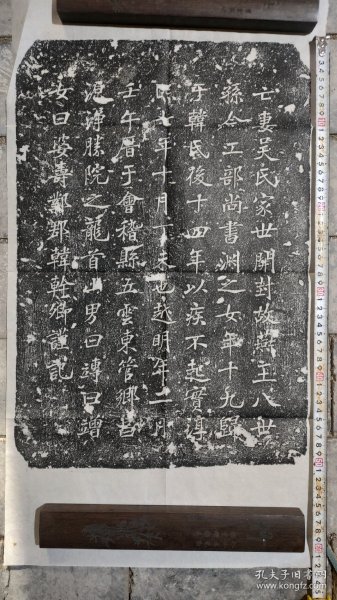 亡妻吴氏家世開封故燕王八世
孫令工部尚書淵之女年十九歸
于韓氏後十四年以疾不起實淳
熙七年十月丁未也越明年二月
壬午厝于會稽縣五雲東管鄉昌
源諦勝院之龍首山男曰𤩹曰
女曰夢壽鄴郡韓銓卿謹記
孔夫子旧书网